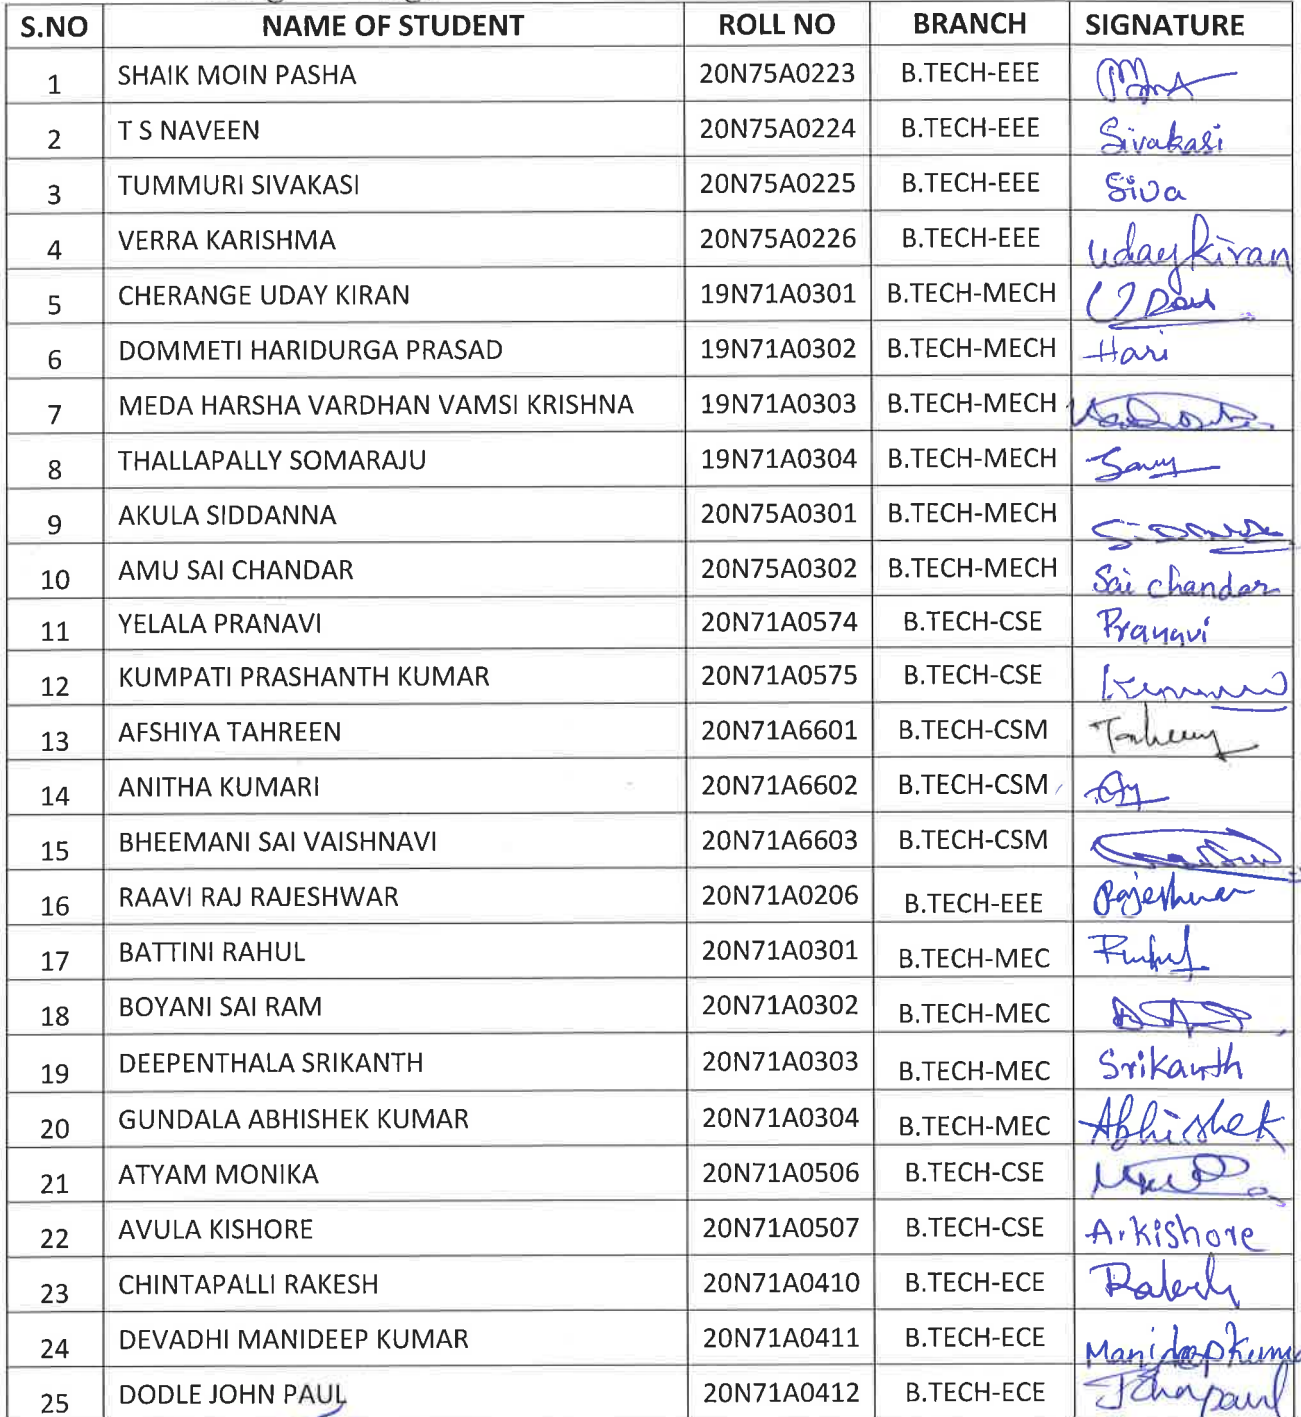 S.NO NAME OF STUDENT ROLL NO BRANCH SIGNATURE
1 SHAIK MOIN PASHA 20N75A0223 B.TECH-EEE
2 T S NAVEEN 20N75A0224 B.TECH-EEE Sivakasi
3 TUMMURI SIVAKASI 20N75A0225 B.TECH-EEE Siva
4 VERRA KARISHMA 20N75A0226 B.TECH-EEE Udaykiran
5 CHERANGE UDAY KIRAN 19N71A0301 B.TECH-MECH
6 DOMMETI HARIDURGA PRASAD 19N71A0302 B.TECH-MECH Hari
7 MEDA HARSHA VARDHAN VAMSI KRISHNA 19N71A0303 B.TECH-MECH
8 THALLAPALLY SOMARAJU 19N71A0304 B.TECH-MECH
9 AKULA SIDDANNA 20N75A0301 B.TECH-MECH
10 AMU SAI CHANDAR 20N75A0302 B.TECH-MECH Sai chandar
11 YELALA PRANAVI 20N71A0574 B.TECH-CSE Pranavi
12 KUMPATI PRASHANTH KUMAR 20N71A0575 B.TECH-CSE
13 AFSHIYA TAHREEN 20N71A6601 B.TECH-CSM
14 ANITHA KUMARI 20N71A6602 B.TECH-CSM
15 BHEEMANI SAI VAISHNAVI 20N71A6603 B.TECH-CSM
16 RAAVI RAJ RAJESHWAR 20N71A0206 B.TECH-EEE Rajeshwar
17 BATTINI RAHUL 20N71A0301 B.TECH-MEC
18 BOYANI SAI RAM 20N71A0302 B.TECH-MEC
19 DEEPENTHALA SRIKANTH 20N71A0303 B.TECH-MEC Srikanth
20 GUNDALA ABHISHEK KUMAR 20N71A0304 B.TECH-MEC Abhishek
21 ATYAM MONIKA 20N71A0506 B.TECH-CSE
22 AVULA KISHORE 20N71A0507 B.TECH-CSE A.Kishore
23 CHINTAPALLI RAKESH 20N71A0410 B.TECH-ECE Rakesh
24 DEVADHI MANIDEEP KUMAR 20N71A0411 B.TECH-ECE
25 DODLE JOHN PAUL 20N71A0412 B.TECH-ECE